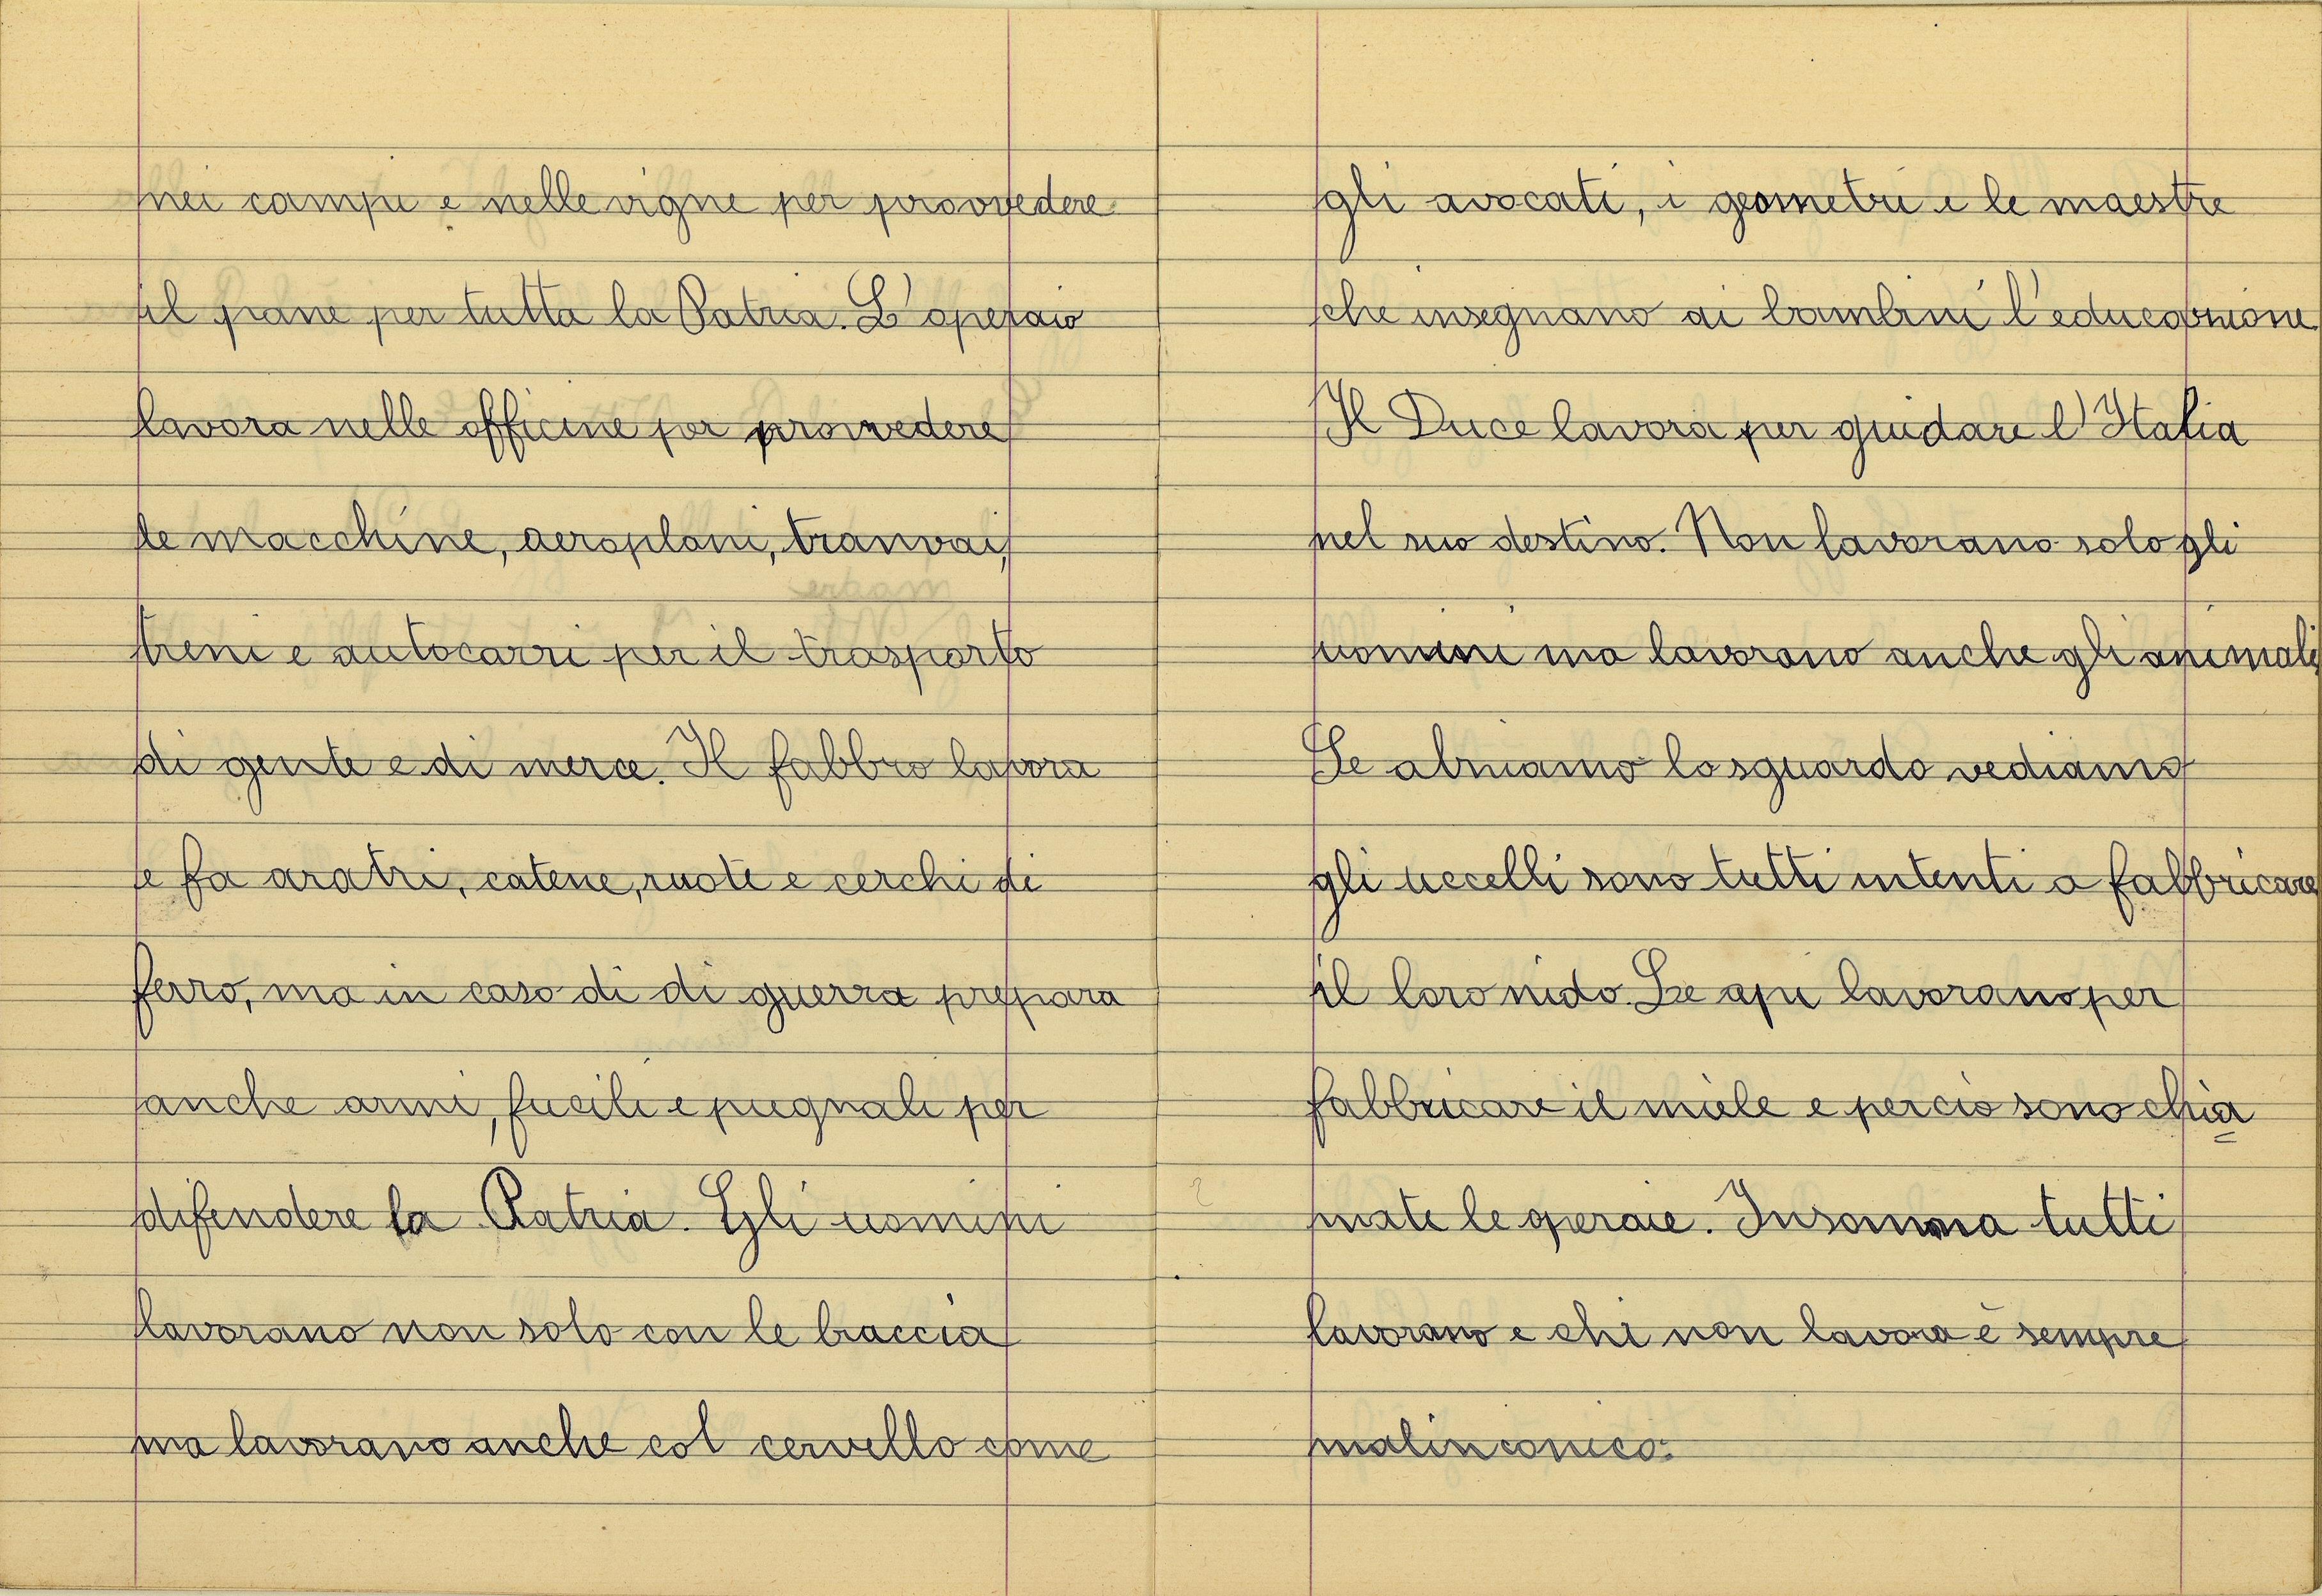 nei campi e nelle vigne per provvedere
il pane per tutta la Patria. L'operaio
lavora nelle officine per provvedere
le macchine, aeroplani, tranvai,
treni e autocarri per il trasporto
di gente e di merce. Il fabbro lavora
e fa aratri, catene, ruote e cerchi di
ferro, ma in caso di di guerra prepara
anche armi, fucili e pugnali per
difendere la Patria. Gli uomini
lavorano non solo con le braccia
ma lavorano anche col cervello come
gli avocati, i geometri e le maestre
che insegnano ai bambini l'educazione.
Il Duce lavora per guidare l'Italia
nel suo destino. Non lavorano solo gli
uomini ma lavorano anche gli animali.
Se alziamo lo sguardo vediamo
gli uccelli sono tutti intenti a fabbricare
il loro nido. Le api lavorano per
fabbricare il miele e perciò sono chia=
mate le operaie. Insomma tutti
lavorano e chi non lavora è sempre
malinconico.